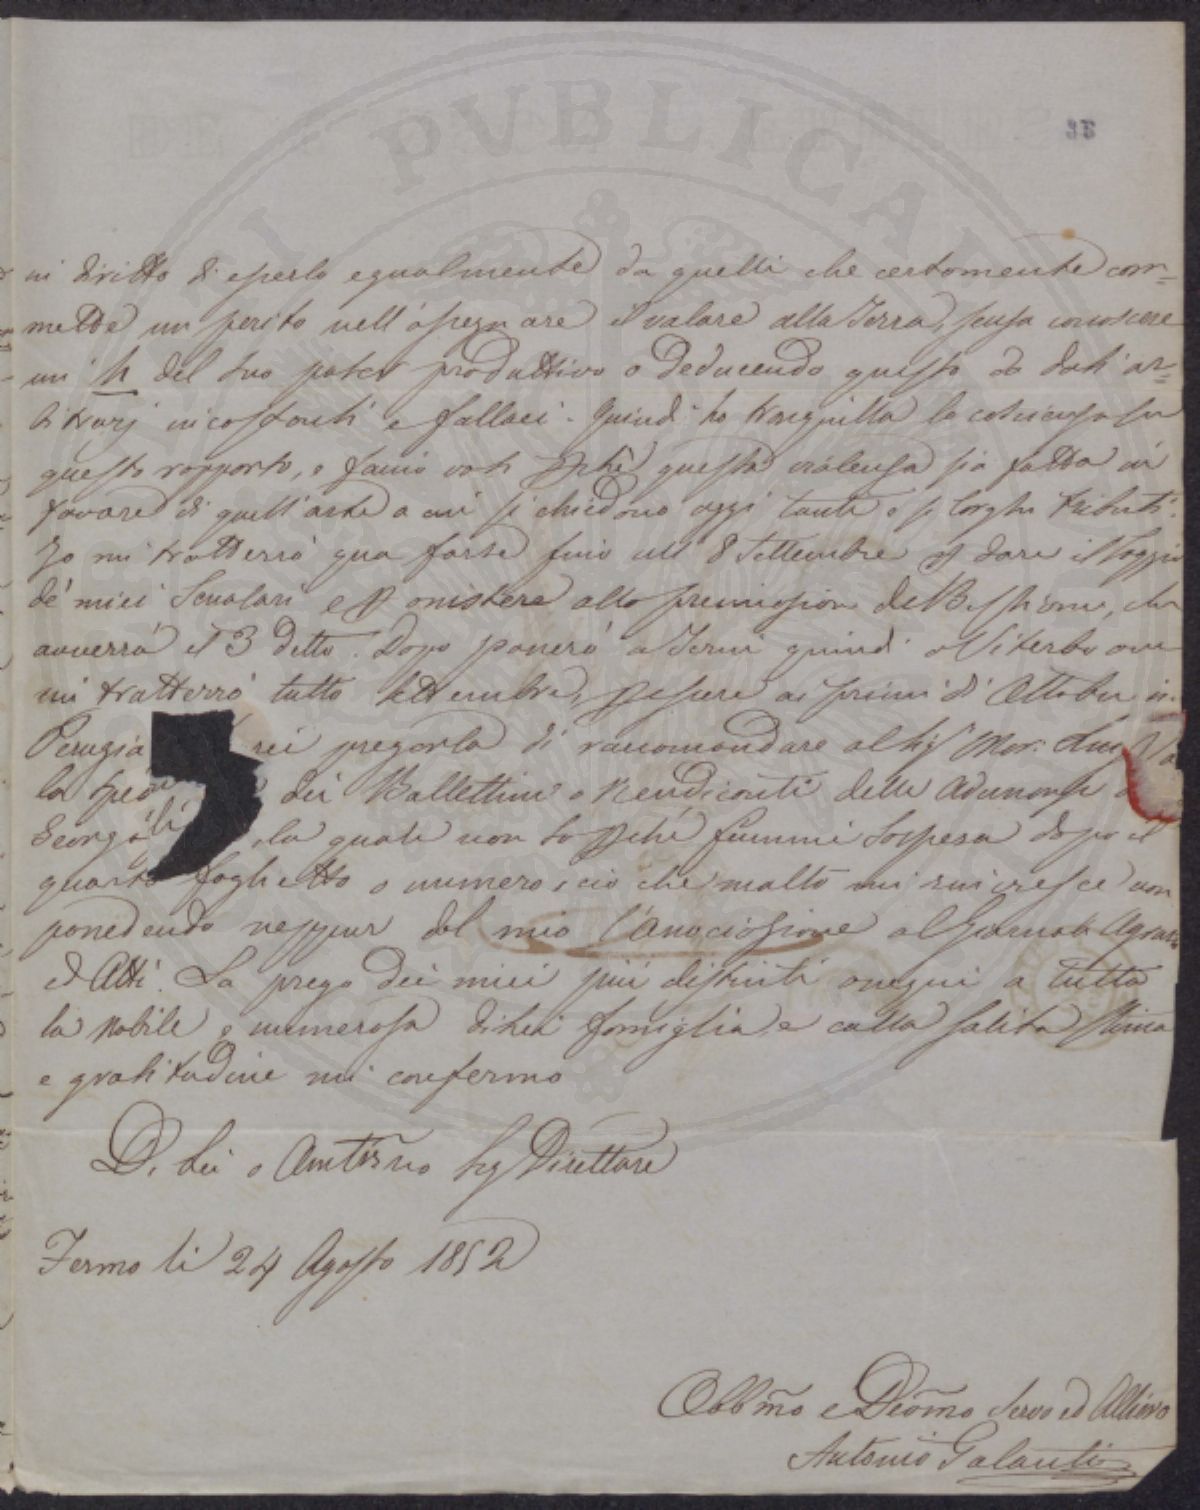 36
in diritto di esserlo egualmente da quelli che certamente com=
mette un perito nell'assegnare il valore alla Terra, senza conoscere
un' h del suo poter produttivo o deducendo questo da dati ar=
bitrarj incostanti e fallaci. Quindi ho tranquilla la coscienza su
questo rapporto, e faccio voti pchè questa violenza sia fatta in
favore di quell'arte a cui si chiedono oggi tanti e sì larghi tributi.
Io mi tratterrò qua forse fino all' 8 Settembre p dare il Saggio
de' miei Scolari e p assistere alla premiazione del Bestiame, che
avverrà il 3 detto. Dopo passerò a Terni quindi a Viterbo ove
mi tratterrò tutto Settembre, p essere ai primi di Ottobre in
Perugia rei pregarla di raccomandare al Sig. Mar:
la sped dei Bullettini o Rendiconti delle Adunanze
Georgofili, la quale non so pchè fummi sospesa dopo il
quarto foghetto o numero, ciò che molto mi rincresce non
possedendo neppur del mio l'Associazione al Giornale Agrario
ed Atti. La prego dei miei più distinti ossequi a tutta
la nobile e numerosa di Lei famiglia, e colla solita stima
e gratitudine mi confermo
D. Lei o Sig Direttore
Fermo li 24 Agosto 1852
Obbmo e Devmo Servo ed Allievo
Antonio Galanti
PUBLICAE